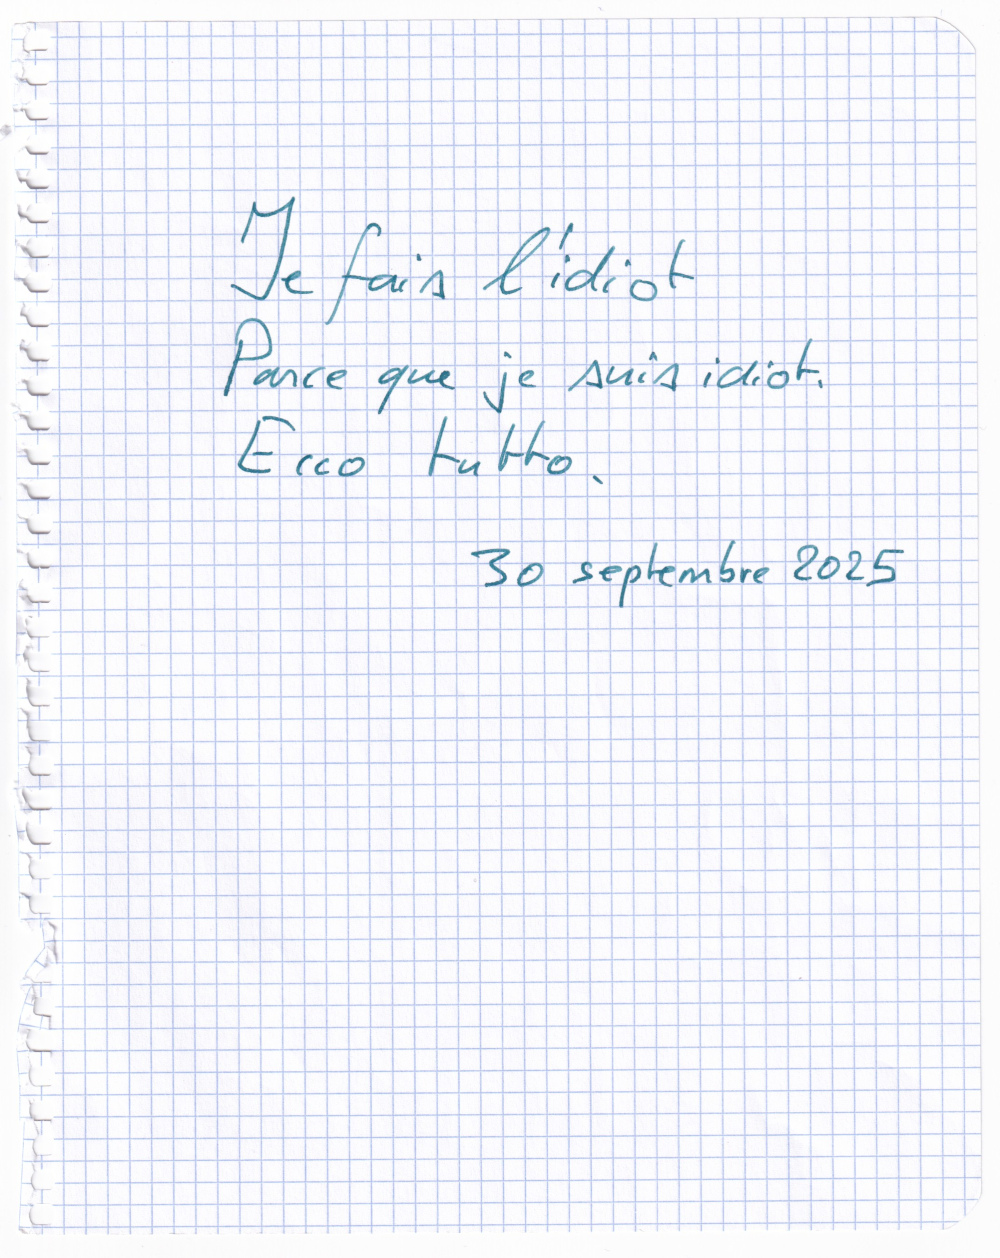 Je fais l'idiot
Parce que je suis idiot.
Ecco tutto.
30 septembre 2025